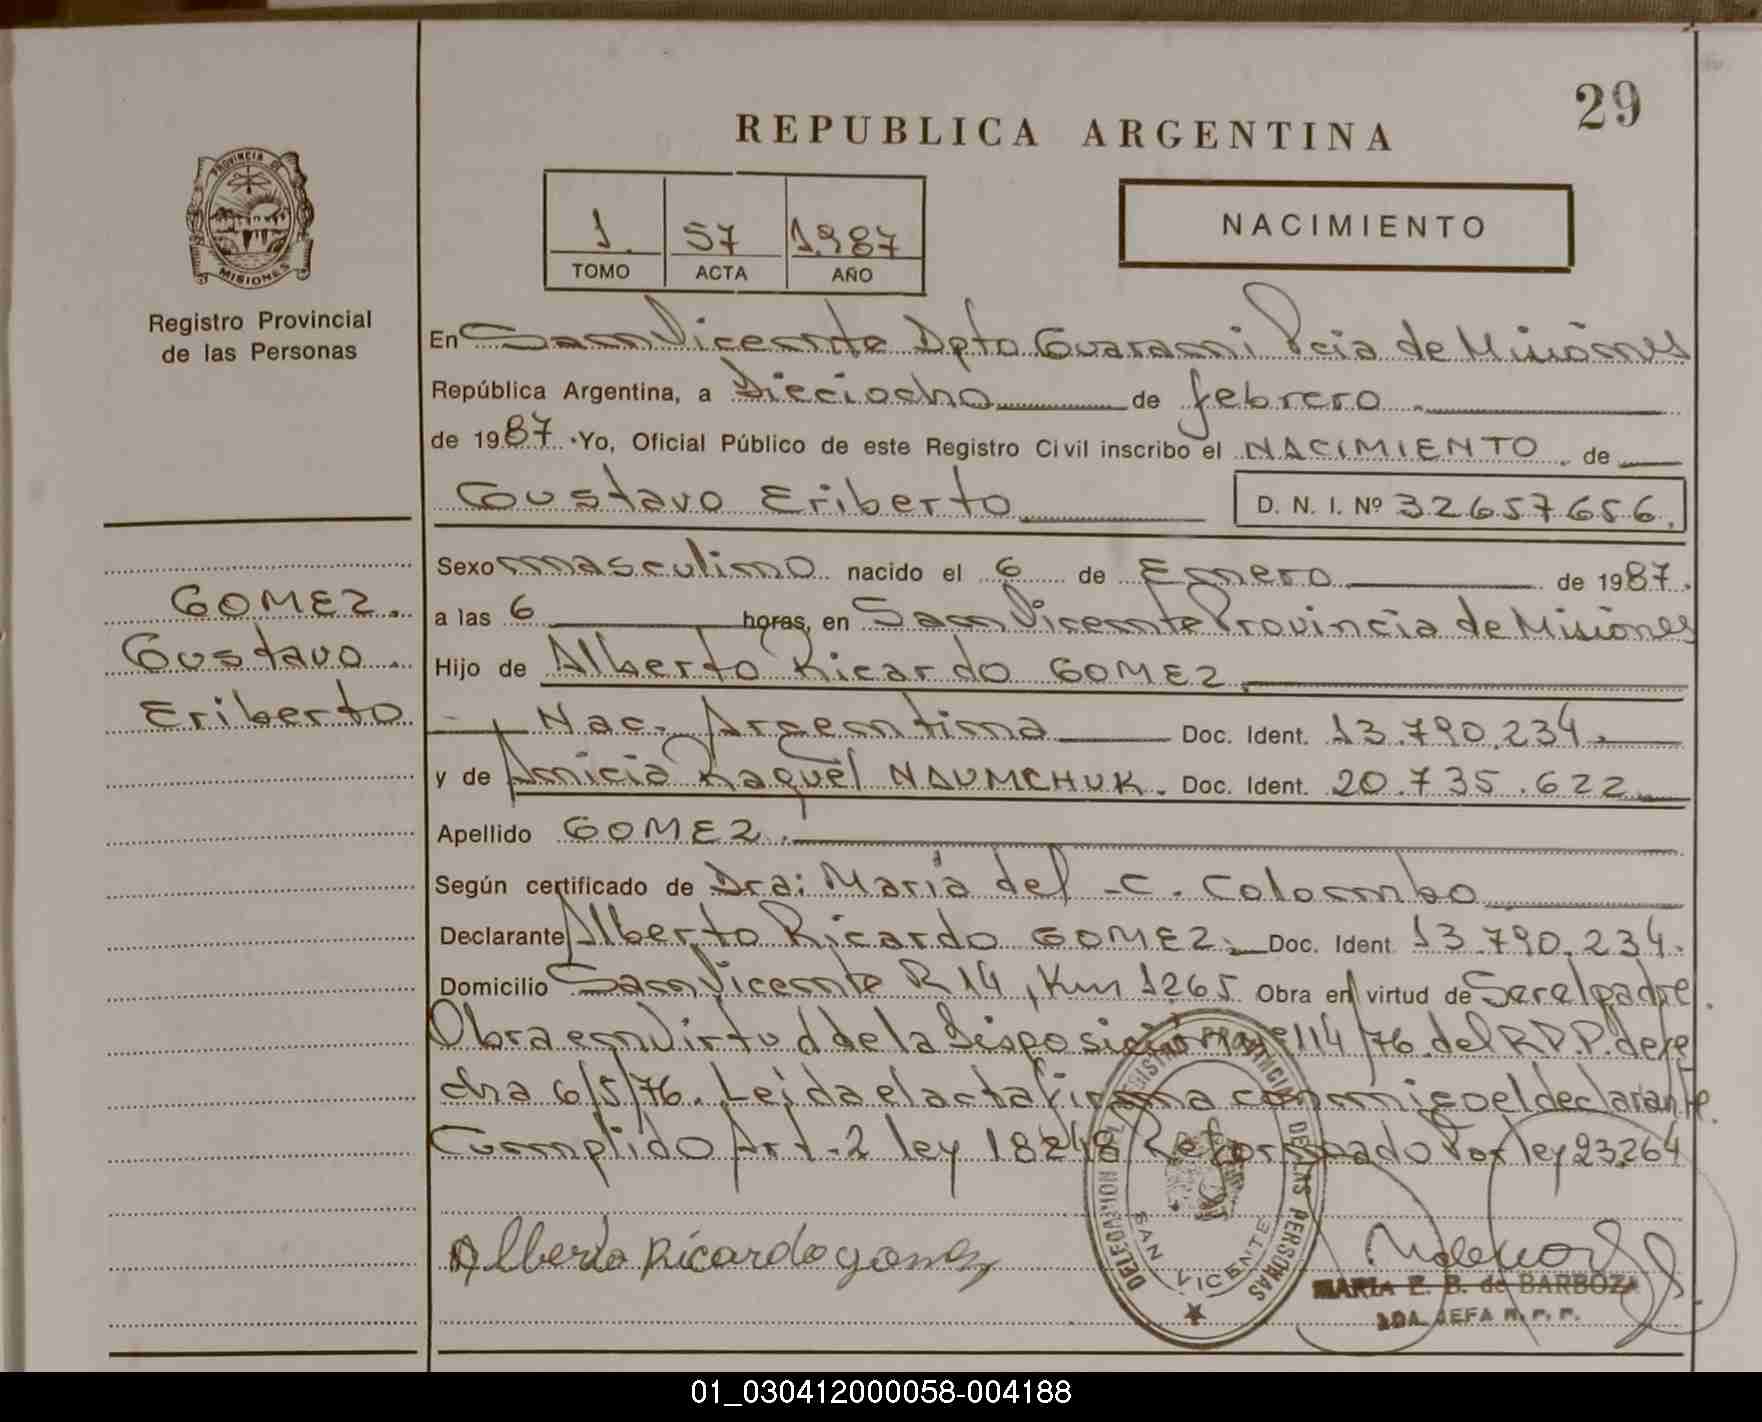 29
REPUBLICA ARGENTINA
PROVINCIA DE
MISIONES
1. 57 1.987
TOMO ACTA AÑO
NACIMIENTO
Registro Provincial
de las Personas
En San Vicente Dpto Guarani Pcia de Misiones
República Argentina, a Dieciocho de febrero.
de 1987. Yo, Oficial Público de este Registro Civil inscribo el NACIMIENTO. de
Gustavo Eriberto D. N. I. Nº 32657656.
Sexo masculino nacido el 6 de Enero de 1987.
GOMEZ.
Gustavo.
Eriberto
a las 6 horas, en San Vicente Provincia de Misiones
Hijo de Alberto Ricardo GOMEZ.
Nac. Argentina Doc. Ident. 13.790.234.
y de Amicia Raquel NAUMCHUK. Doc. Ident. 20.735.622
Apellido GOMEZ.
Según certificado de Dra: María del C. Colombo
Declarante Alberto Ricardo GOMEZ. Doc. Ident. 13.790.234.
Domicilio San Vicente R 14, Km 1265 Obra en virtud de Ser el padre.
Obra en Virtud de la Disposición nº 114/76 del R.P.P. de fe
cha 6/5/76. Leida el acta firma conmigo el declarante.
Cumplido Art. 2 ley 18248 Reformado Por ley 23.264
Alberto Ricardo gomez
DELEGACION DEL REGISTRO PROVINCIAL DE LAS PERSONAS
SAN VICENTE
MARIA E. B. de BARBOZA
JEFA R. P. P.
01_030412000058-004188